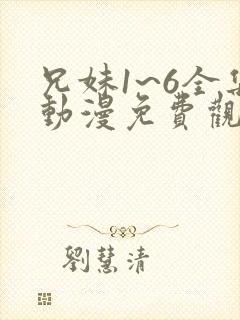 兄妹1~6全集
動漫免費觀
劉慧清